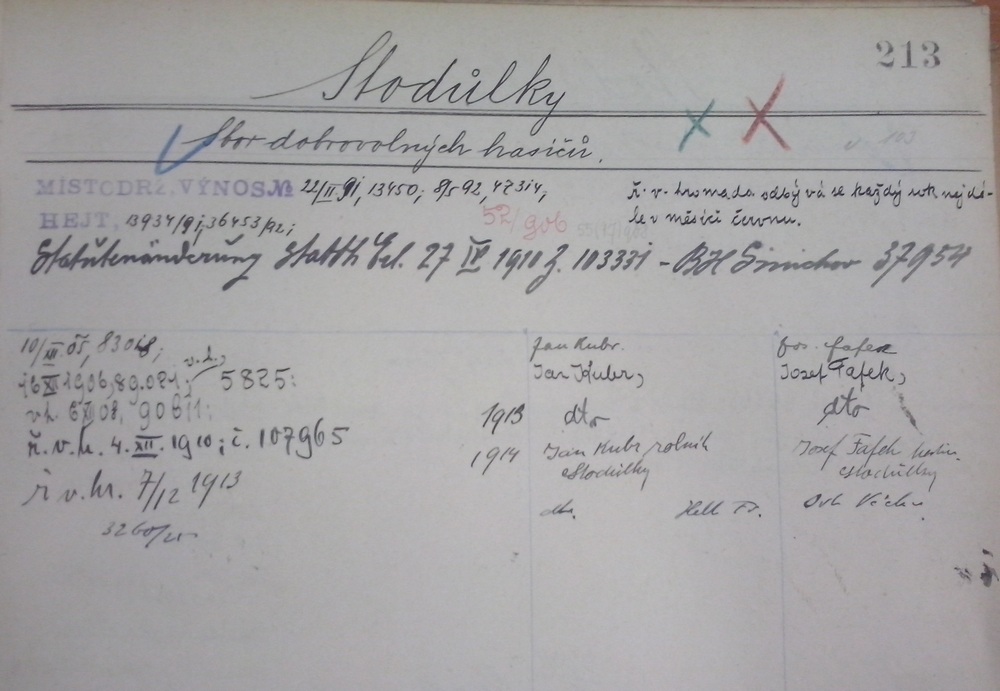 213
Stodůlky
Sbor dobrovolných hasičů.
MÍSTODRŽ. VÝNOS № 22/II 91, 13450; 8/5 92, 47314,
HEJT, 13934/91; 36453/92;
52/906
ř. v. hromada odbývá se každý rok nejdé-
le v měsíci červnu.
Statutenänderung Statth Erl. 27 IV 1910 Z. 103331 - BH Smichov 37954
10/XII. 05, 83048;
16 XI 1906, 89.021; v.h., 5825:
v.h. 6 XII 08, 90611:
ř. v. h. 4. XII. 1910; č. 107965
ř v. hr. 7/12 1913
3260/25
Jan Kubr. Jos. Fafek
Jan Kubr, Josef Fafek,
1913 dto dto
1914 Jan Kubr rolník Stodůlky
Josef Fafek Stodůlky
dto. Fr.